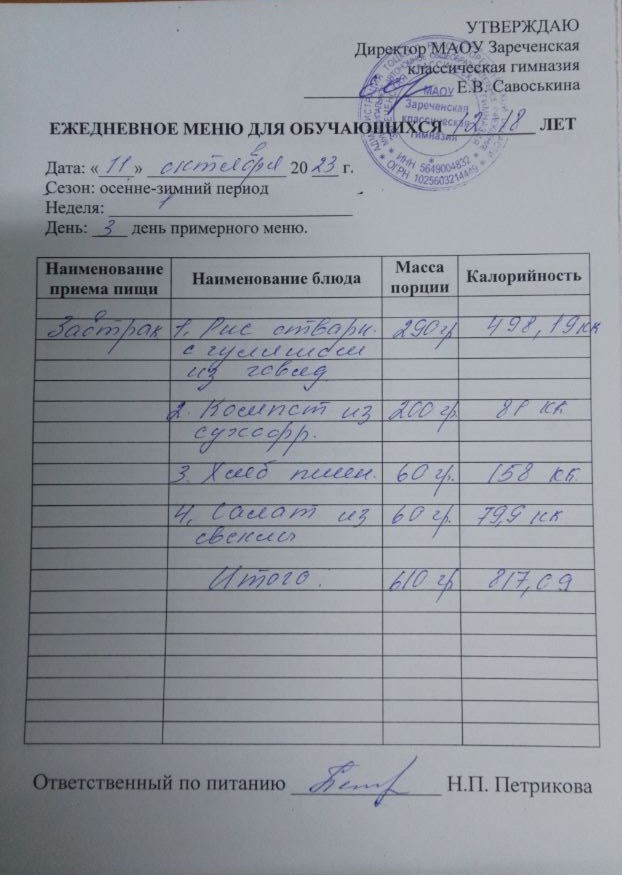 УТВЕРЖДАЮ
Директор МАОУ Зареченская
классическая гимназия
Е.В. Савоськина
МАОУ
Зареченская
классическая
гимназия
* ИНН 5649004832 *
* ОГРН 1025603214449 *
ЕЖЕДНЕВНОЕ МЕНЮ ДЛЯ ОБУЧАЮЩИХСЯ 12-18 ЛЕТ
Дата: « 11 » октября 20 23 г.
Сезон: осенне-зимний период
Неделя: 1
День: 3 день примерного меню.
Наименование приема пищи Наименование блюда Масса порции Калорийность
Завтрак 1. Рис отварн. 290 гр 498,19 кк
с гуляшом
из говяд
2. Компот из 200 гр 81 кк
сухофр.
3. Хлеб пшен. 60 гр. 158 кк
4. Салат из 60 гр. 79,9 кк
свеклы
Итого: 610 гр 817,09
Ответственный по питанию Н.П. Петрикова